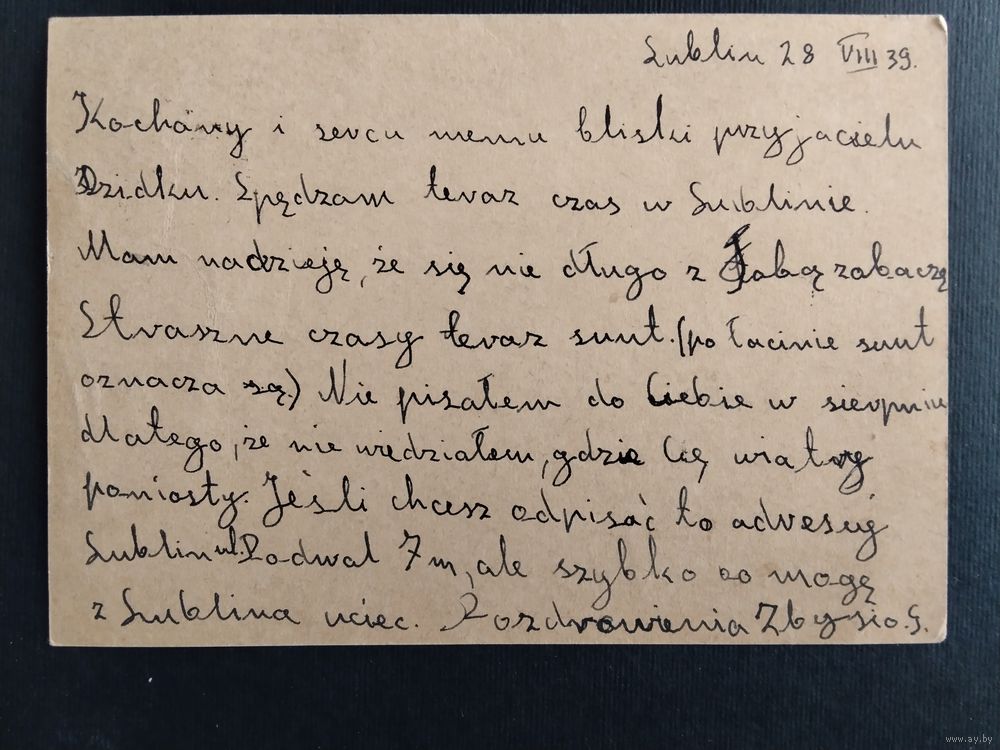 Lublin 28 VIII 39.
Kochany i sercu memu bliski przyjacielu
Dzidku. Spędzam teraz czas w Lublinie.
Mam nadzieję, że się nie długo z Tobą zobaczę
Straszne czasy teraz sunt. (po łacinie sunt
oznacza są.) Nie pisałem do Ciebie w sierpniu
dlatego, że nie wiedziałem, gdzie Cię wiatry
poniosły. Jeśli chcesz odpisać to adresuj
Lublin ul. Podwal 7 m, ale szybko bo mogę
z Lublina uciec. Pozdrowienia Zbysio. S.
www.ay.by